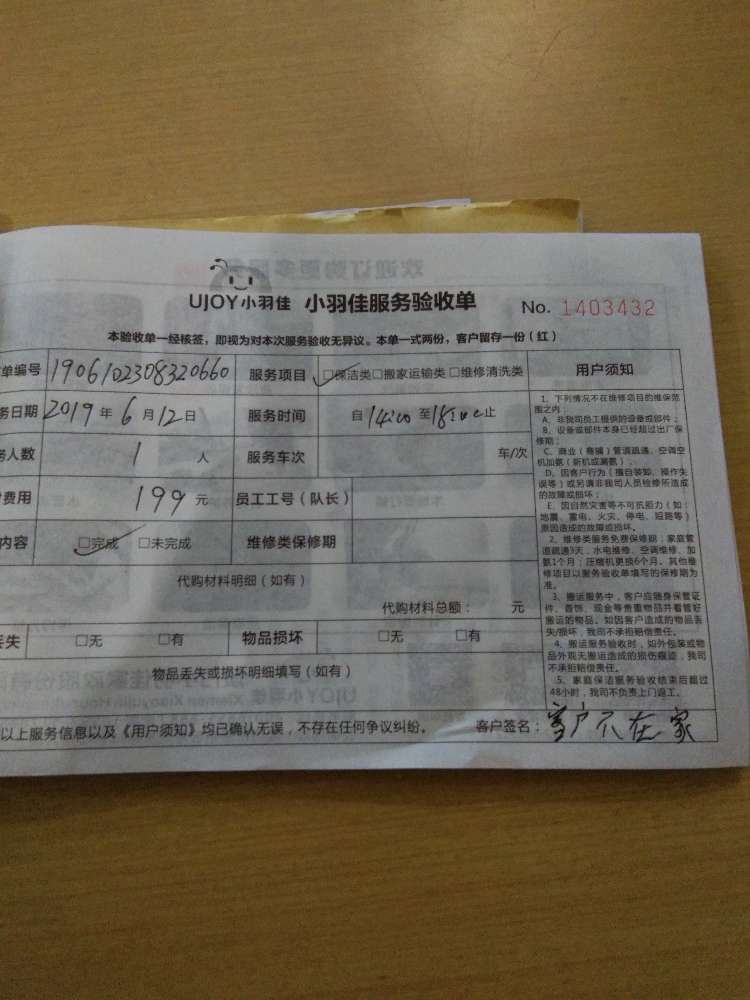 UJOY小羽佳 小羽佳服务验收单 No. 1403432
本验收单一经核签，即视为对本次服务验收无异议。本单一式两份，客户留存一份(红)
单编号 1906102308320660 服务项目 ☑保洁类□搬家运输类□维修清洗类 用户须知
务日期 2019年6月12日 服务时间 自14:00至18:00止
务人数 1 人 服务车次 车/次
费用 199 元 员工工号(队长)
内容 ☑完成 □未完成 维修类保修期
代购材料明细(如有)
代购材料总额： 元
丢失 □无 □有 物品损坏 □无 □有
物品丢失或损坏明细填写(如有)
以上服务信息以及《用户须知》均已确认无误，不存在任何争议纠纷。 客户签名：客户不在家
1、下列情况不在维修项目的维保范
围之内：
A、非我司员工提供的设备或部件；
B、设备或部件本身已经超过出厂保
修期；
C、商业(餐捅)管道疏通、空调空
机加氨(新机或漏氨)；
D、因客户行为(擅自装卸、操作失
误等)或另请非我司人员检修所造成
的故障或损坏；
E、因自然灾害等不可抗拒力(如：
地震、雷电、火灾、停电、短路等)
原因造成的故障或损坏。
2、维修类服务免费保修期：家庭管
道疏通3天，水电维修、空调维修、加
氨1个月；压缩机更换6个月。其他维
修项目以服务验收单填写的保修期为
准。
3、搬运服务中，客户应随身保管证
件、首饰、现金等贵重物品并看管好
搬运的物品。如因客户造成的物品丢
失/损坏，我司不承担赔偿责任。
4、搬运服务验收时，如外包装或物
品外观无搬运造成的损伤痕迹，我司
不承担赔偿责任。
5、家庭保洁服务验收结束后超过
48小时，我司不负责上门返工。